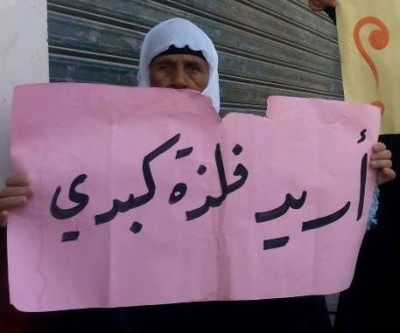 أريد فلذة كبدي